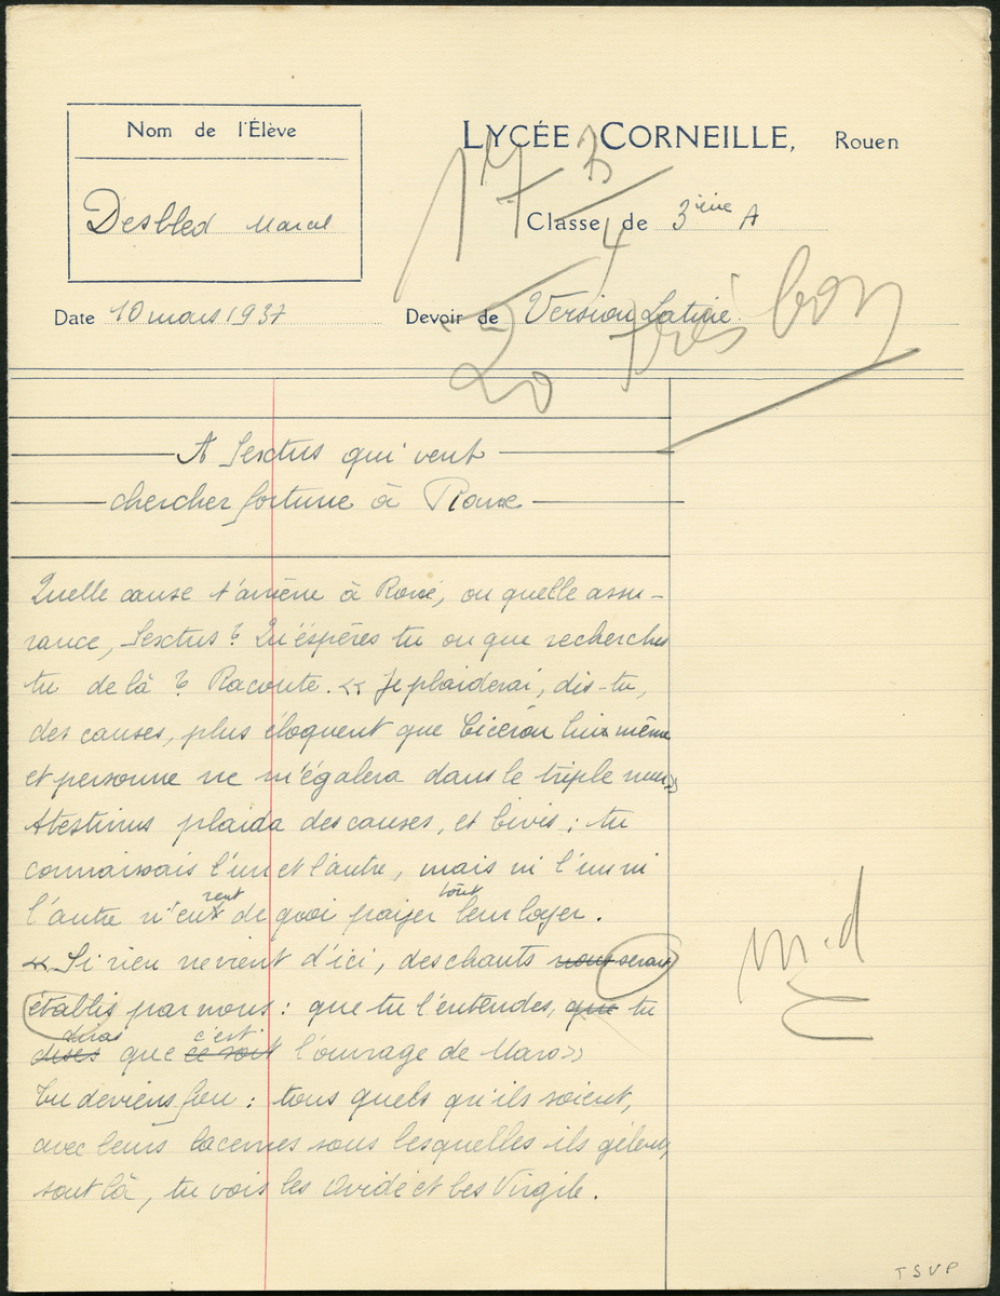 Nom de l'Élève
LYCÉE CORNEILLE, Rouen
Desbled Marcel
17 3/4
Classe de 3ième A
20
très bon
Date 10 mars 1937
Devoir de Version Latine
A Sextus qui veut
chercher fortune à Rome
Quelle cause t'amène à Rome, ou quelle assu-
rance, Sextus ? Qu'éspères tu ou que recherches
tu de là ? Raconte. << Je plaiderai, dis-tu,
des causes, plus éloquent que Cicéron lui même
et personne ne m'égalera dans le triple forum>>
Atestinus plaida des causes, et Civis ; tu
connaissais l'un et l'autre, mais ni l'un ni
l'autre n'eurent de quoi payer tout leur loyer.
<< Si rien ne vient d'ici, des chants nous seront
établis par nous : que tu l'entendes, que tu
dises diras que ce soit c'est l'ouvrage de Maro>>
Tu deviens fou : tous quels qu'ils soient,
avec leurs lacernes sous lesquelles ils gèlent,
sont là, tu vois les Ovide et les Virgile.
m.d
TSVP